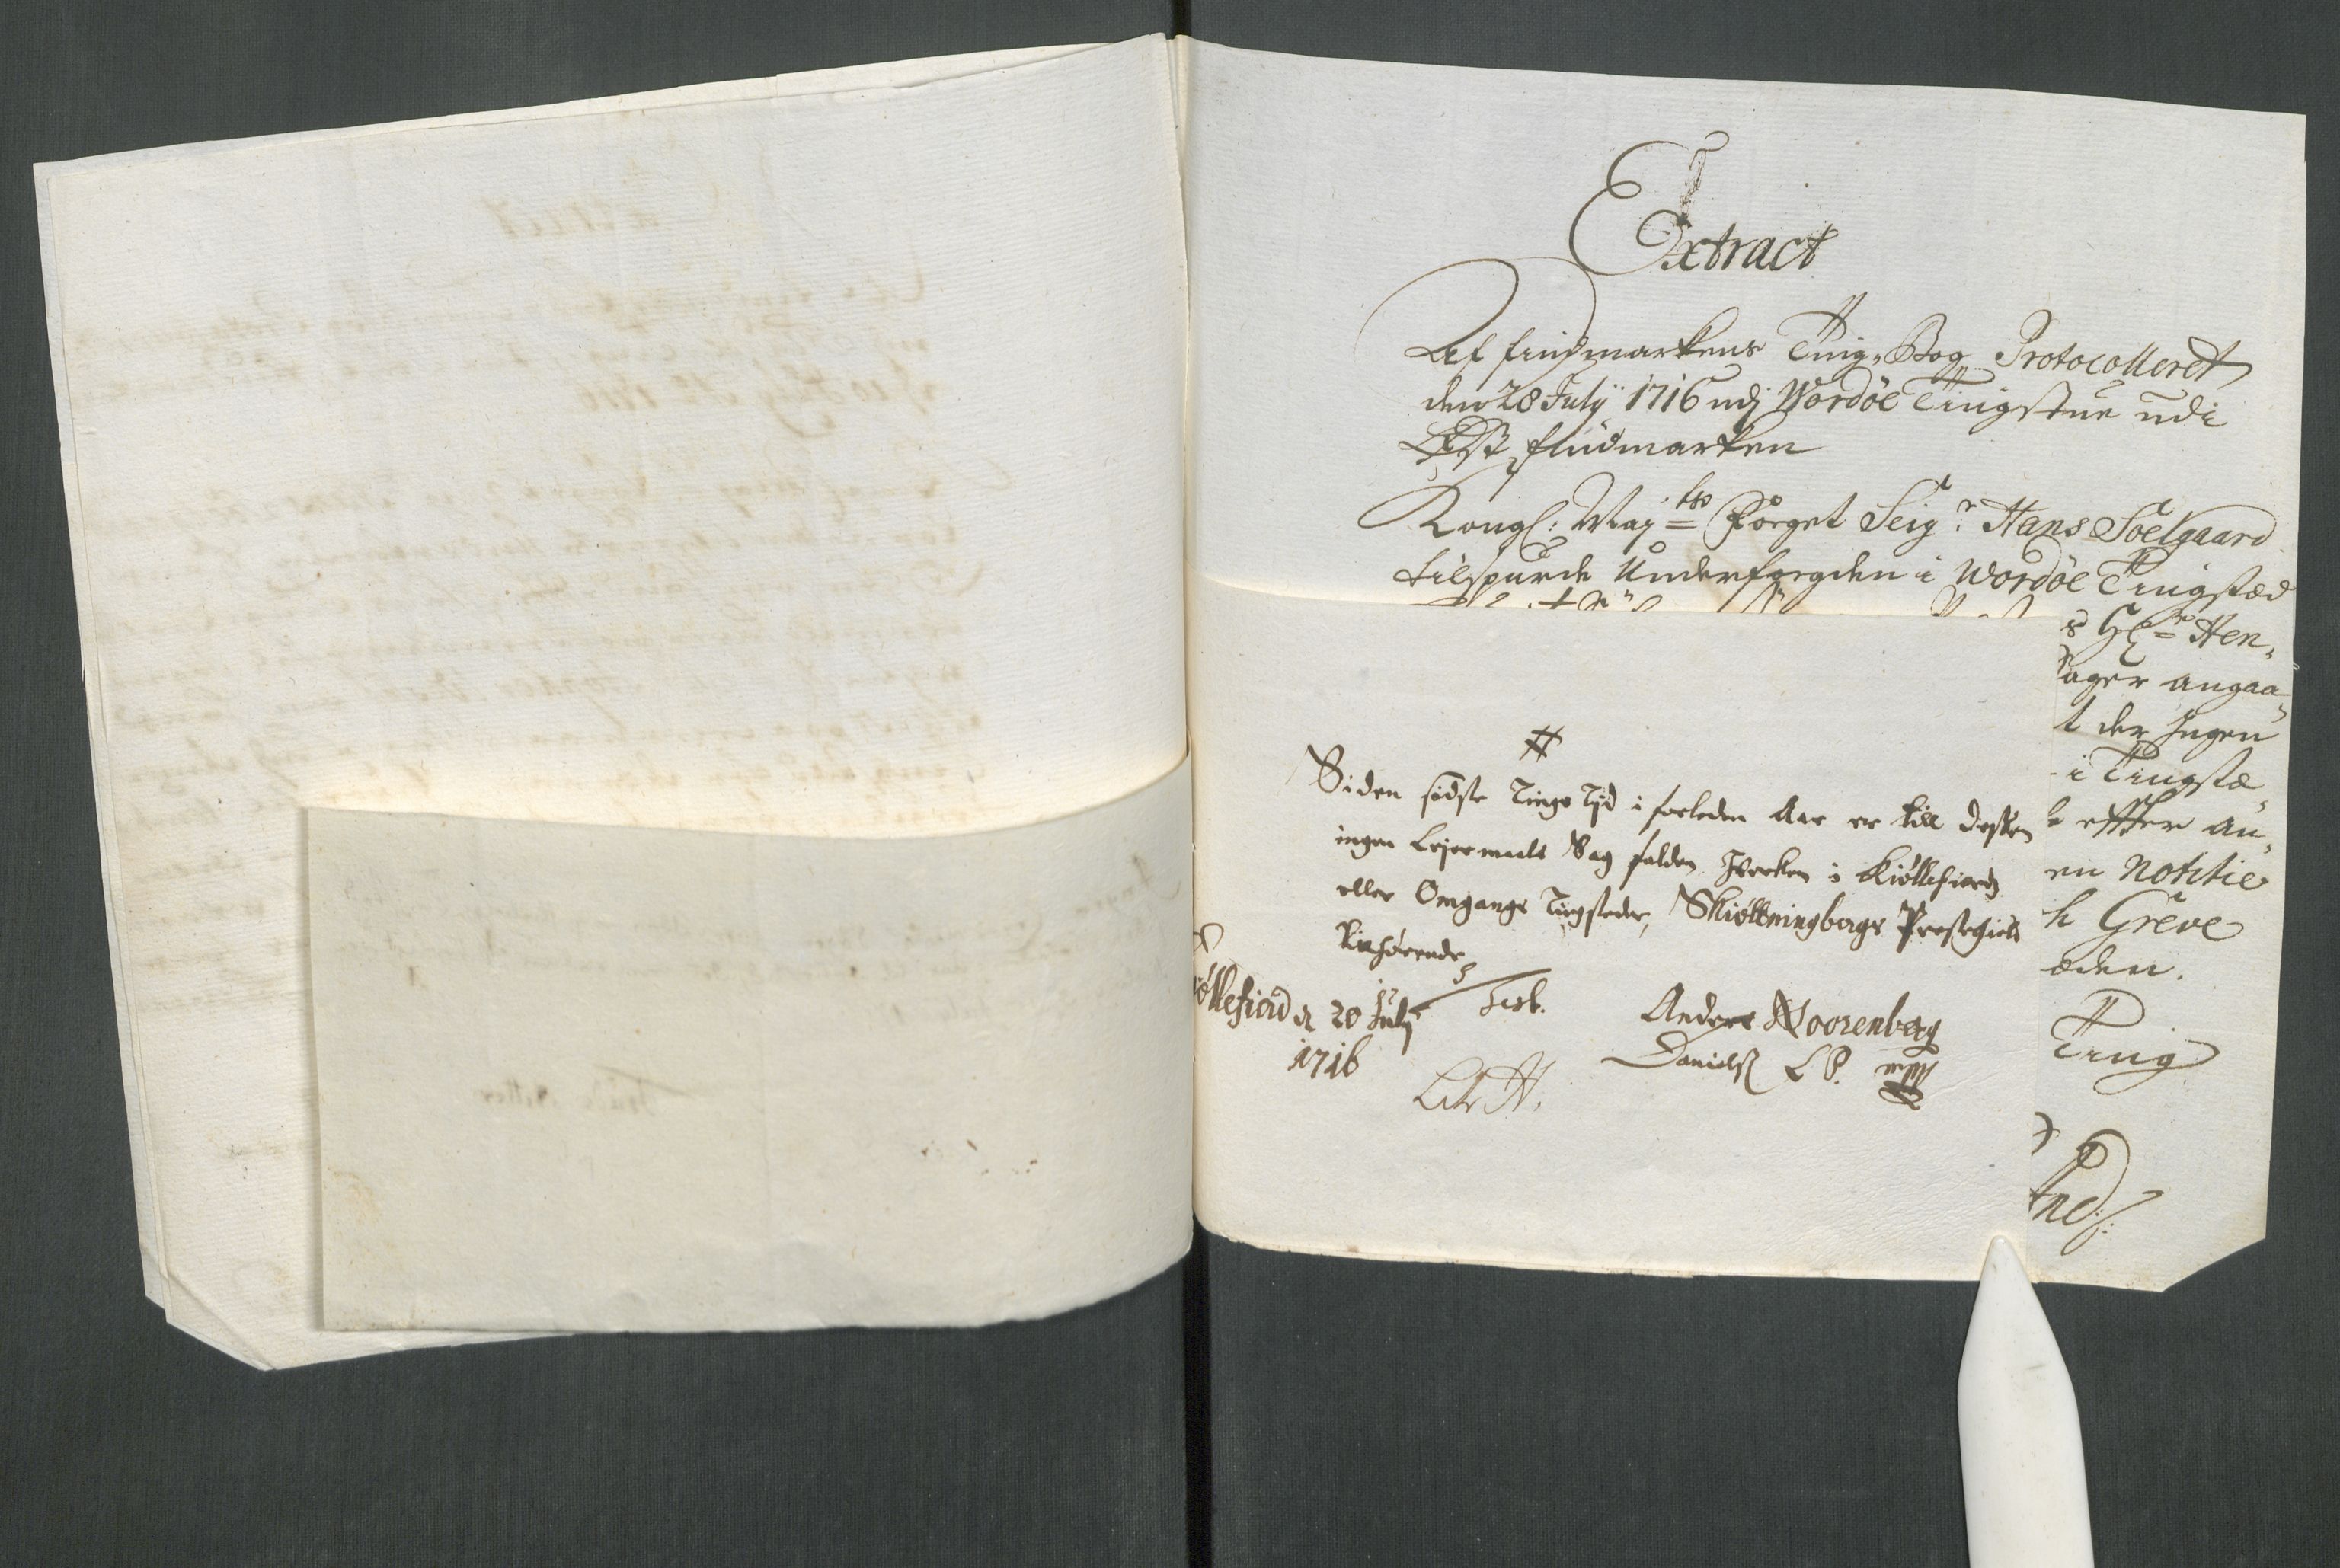 Extract
Af findmarkens Ting-Bog Protocolleret
den 28 July 1716 udj Wardöe Tingstue udi
Öst findmarken
Kongl: May=ts foeget Seigr Hans Soelgaard
tilspurde Underfoegden i Wardöe Tingsted
s Hr= Hen„
Sager angaa„
t der Ingen
i Tingstæ„
effter an„
en Notitie
h Greve
æden.
Ting
#
Siden sidste Tings Tjd i forleden Aar er till desten
ingen Lejermaals Sag falden hverken i Kiøllefiord
eller Omgangs Tingsteder, Skiøttningbergs Prestegield
tilhørende
øllefiord d 20 July
1716
Test.
Anders Noorenberg
Daniels L P. mppr
Litr H.